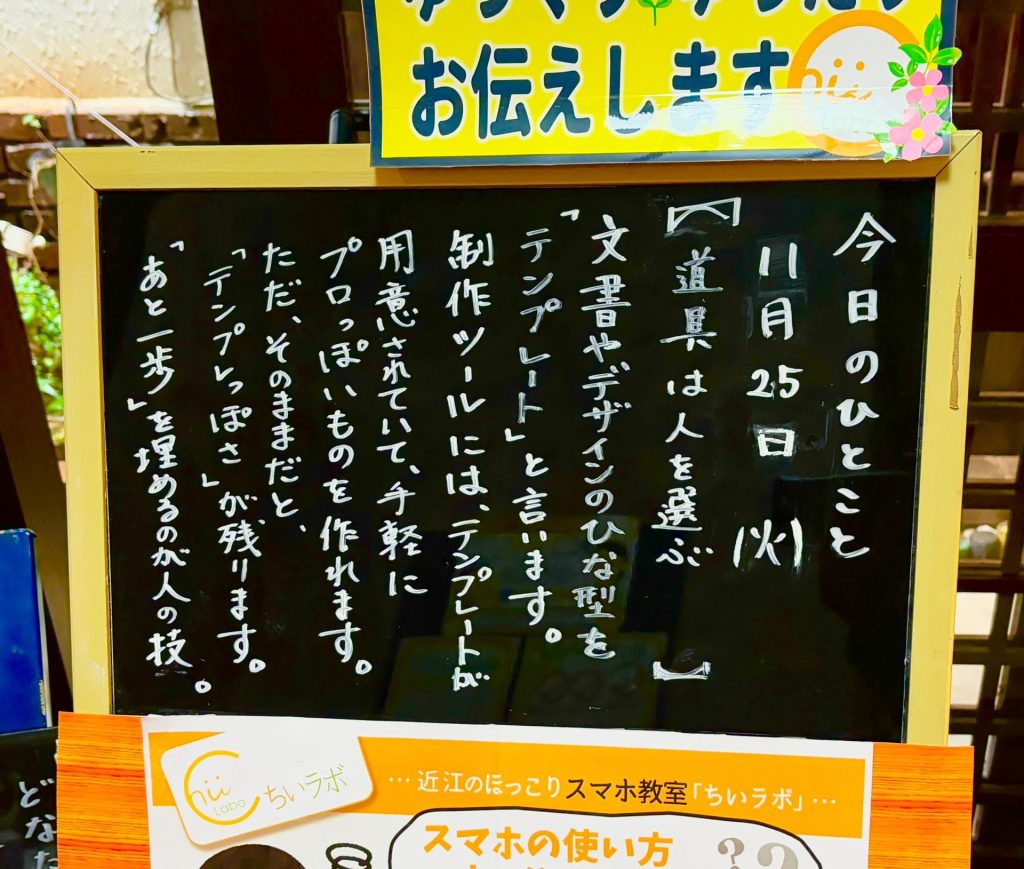 お伝えします
今日のひとこと
11月25日（火）
【道具は人を選ぶ】
文書やデザインのひな型を
「テンプレート」と言います。
制作ツールには、テンプレートが
用意されていて、手軽に
プロっぽいものを作れます。
ただ、そのままだと、
「テンプレっぽさ」が残ります。
「あと一歩」を埋めるのが人の技。
chii Labo ちいラボ
…近江のほっこりスマホ教室「ちいラボ」…
スマホの使い方
??
どな